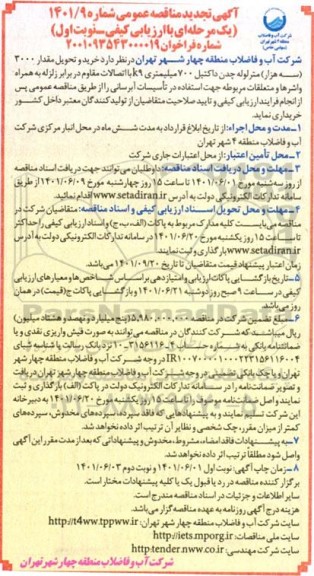 آگهی تجدید مناقصه عمومی شماره ۱۴۰۱/۹
(یک مرحله‌ای با ارزیابی کیفی_نوبت اول)
شماره فراخوان ۲۰۰۱۰۹۳۵۴۳۰۰۰۰۱۹
شرکت آب و فاضلاب
منطقه ۴ شهر تهران
(سهامی خاص)
شرکت آب و فاضلاب منطقه چهار شهر تهران در نظر دارد خرید و تحویل مقدار ۳۰۰۰
(سه هزار) متر لوله چدن داکتیل ۷۰۰ میلیمتری k9 با اتصالات مقاوم در برابر زلزله به همراه
واشر ها و متعلقات مربوطه جهت استفاده در تأسیسات آبرسانی را از طریق مناقصه عمومی پس
از انجام فرایند ارزیابی کیفی و تایید صلاحیت متقاضیان از تولیدکنندگان معتبر داخل کشور
خریداری نماید.
۱-مدت و محل اجراء: از تاریخ ابلاغ قرارداد به مدت شش ماه در محل انبار مرکزی شرکت
آب و فاضلاب منطقه ۴ شهر تهران
۲-محل تأمین اعتبار: از محل اعتبارات جاری شرکت
۳-مهلت و محل دریافت اسناد مناقصه: داوطلبان می‌توانند جهت دریافت اسناد مناقصه
از روز سه شنبه مورخ ۱۴۰۱/۰۶/۰۱ تا ساعت ۱۵ روز چهارشنبه مورخ ۱۴۰۱/۰۶/۰۹ از طریق
سامانه تدارکات الکترونیکی دولت به آدرس www.setadiran.ir اقدام نمائید.
۴-مهلت و محل تحویل اسناد ارزیابی کیفی و اسناد مناقصه: متقاضیان شرکت در
مناقصه می‌بایست کلیه مدارک مربوط به پاکات (الف، ب، ج) و اسناد ارزیابی کیفی را حداکثر
تا ساعت ۱۵ روز یکشنبه مورخ ۱۴۰۱/۰۶/۲۰ در سامانه تدارکات الکترونیکی دولت به آدرس
www.setadiran.ir بارگذاری و ثبت نمایند.
زمان اعتبار پیشنهاد قیمت متقاضیان تا تاریخ ۱۴۰۱/۰۹/۲۰ می باشد.
۵-تاریخ بازگشایی پاکات ارزیابی و امتیازدهی بر اساس شاخص‌ها و معیارهای ارزیابی
کیفی در ساعت ۹ صبح روز دوشنبه ۱۴۰۱/۰۶/۲۱ و بازگشایی پاکات ج (قیمت) در همان
روز می باشد.
۶-مبلغ تضمین شرکت در مناقصه ۵،۹۸۰،۰۰۰،۰۰۰ (پنج میلیارد و نهصد و هشتاد میلیون)
ریال میباشد که شرکت کنندگان در مناقصه می توانند به صورت فیش واریزی نقدی و یا
ضمانتنامه بانکی به شماره حساب نزد بانک رسالت یا شناسه شبای
در وجه شرکت آب و فاضلاب منطقه چهار شهر
تهران و یا چک بانکی تضمینی در وجه شرکت آب و فاضلاب منطقه چهار شهر تهران دریافت
و تصویر ضمانتنامه را در سامانه تدارکات الکترونیک دولت در پاکت (الف) بارگذاری و ثبت
نمایند و اصل ضمانتنامه موصوف را تا ساعت ۱۵ روز یکشنبه مورخ ۱۴۰۱/۰۶/۲۰ به دبیرخانه
این شرکت تسلیم نمایند و به پیشنهادهایی که فاقد سپرده، سپرده‌های مخدوش، سپرده‌های
کمتر از میزان مقرر، چک شخصی و نظایر آن ترتیب اثر داده نخواهد شد.
۷-به پیشنهادات فاقد امضاء، مشروط، مخدوش و پیشنهاداتی که بعد از مدت مقرر این آگهی
وصول شود مطلقا ترتیب اثر داده نخواهد شد.
۸-زمان چاپ آگهی: نوبت اول ۱۴۰۱/۰۶/۰۱ و نوبت دوم ۱۴۰۱/۰۶/۰۳
برگزار کننده مناقصه در رد یا قبول یک یا کلیه پیشنهادات مختار است.
سایر اطلاعات و جزئیات در اسناد مناقصه مندرج است.
هزینه درج آگهی روزنامه به عهده مناقصه گزار می‌باشد.
سایت شرکت آب و فاضلاب منطقه چهار شهر تهران: http://t4ww.tppww.ir
سایت ملی مناقصات: http://iets.mporg.ir
سایت شرکت مهندسی: http:tender.nww.co.ir
شرکت آب و فاضلاب منطقه چهار شهر تهران